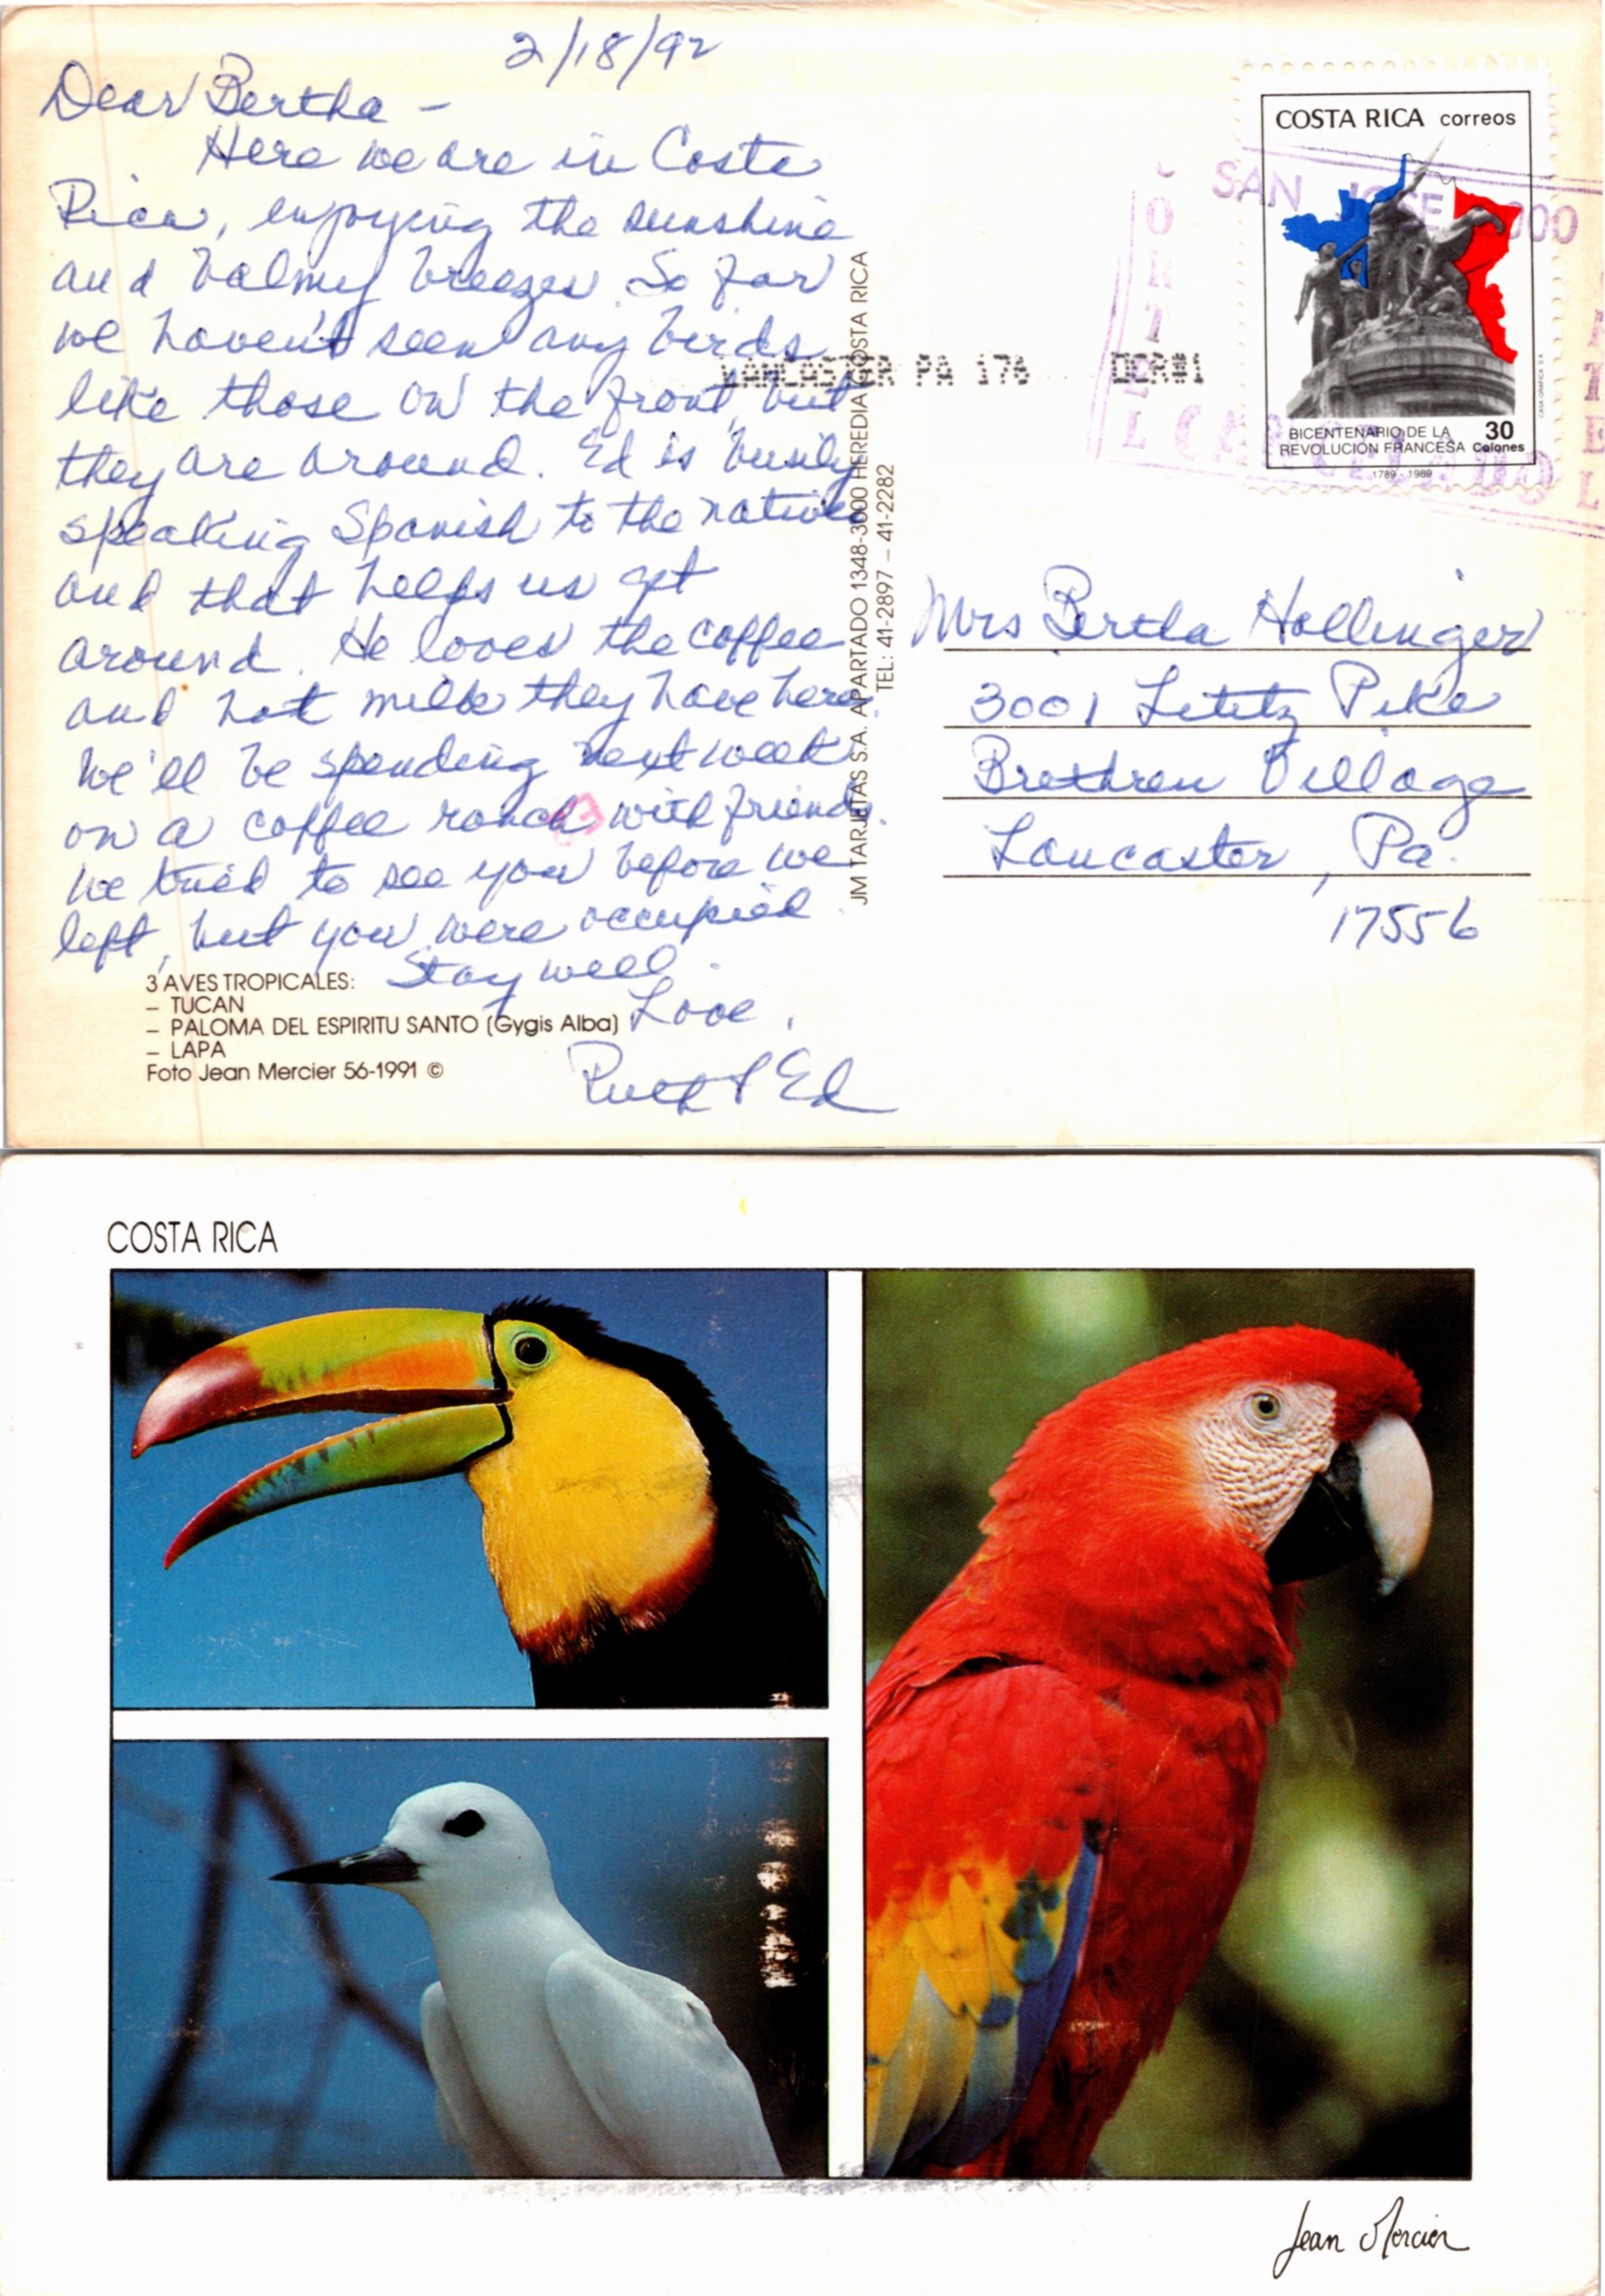 2/18/92
Dear Bertha -
Here we are in Costa
Rica, enjoying the sunshine
and balmy breezes. So far
we haven't seen any birds
like those on the front, but
they are around. Ed is busily
speaking Spanish to the natives
and that helps us get
around. He loves the coffee
and hot milk they have here.
We'll be spending next week
on a coffee ranch with friends.
We tried to see you before we
left, but you were occupied.
Stay well.
Love,
Ruth & Ed
3 AVES TROPICALES:
– TUCAN
– PALOMA DEL ESPIRITU SANTO (Gygis Alba)
– LAPA
Foto Jean Mercier 56-1991 ©
JM TARJETAS S.A. APARTADO 1348-3000 HEREDIA COSTA RICA
TEL: 41-2897 – 41-2282
LANCASTER PA 176 OCR#1
COSTA RICA correos
SAN JOSE 1000
BICENTENARIO DE LA 30
REVOLUCION FRANCESA Colones
1789 - 1989
CASA GRAFICA S.A.
Mrs Bertha Hollinger
3001 Lititz Pike
Brethren Village
Lancaster, Pa.
17556
COSTA RICA
Jean Mercier